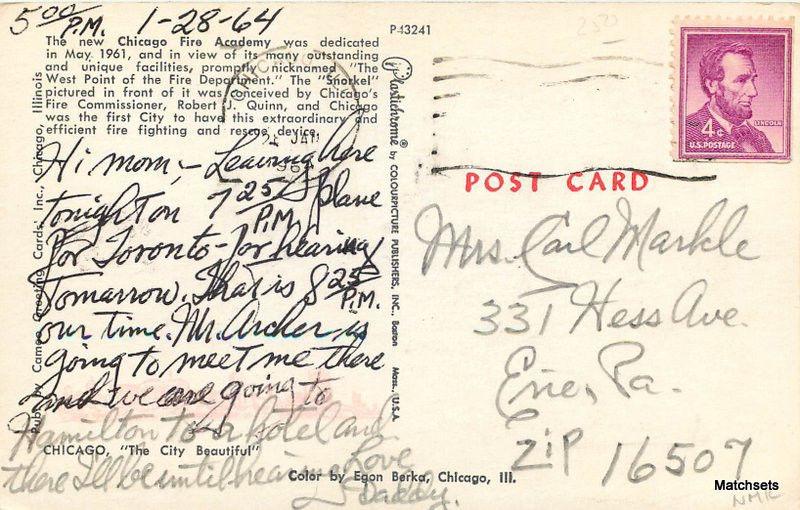 5 00 P.M. 1-28-64
P-43241
250
The new Chicago Fire Academy was dedicated
in May 1961, and in view of its many outstanding
and unique facilities, promptly nicknamed "The
West Point of the Fire Department." The "Snorkel"
pictured in front of it was conceived by Chicago's
Fire Commissioner, Robert J. Quinn, and Chicago
was the first City to have this extraordinary and
efficient fire fighting and rescue device.
Publ. by Cameo Greeting Cards, Inc., Chicago, Illinois
Hi Mom,- Leaving here
tonight on 7 25 P.M. plane
for Toronto - for hearing
Tomarrow. That is 8 25 P.M.
our time. Mr. Archer is
going to meet me there
and we are going to
Hamilton to a hotel and
there I'll be until hearing. Love
Daddy.
CHICAGO, "The City Beautiful"
Color by Egon Berka, Chicago, Ill.
Plastichrome® by COLOURPICTURE PUBLISHERS, INC., Boston Mass., U.S.A.
JAN
4¢
LINCOLN
U.S. POSTAGE
POST CARD
Mrs. Carl Markle
331 Hess Ave.
Erie, Pa.
ZIP 16507
Matchsets